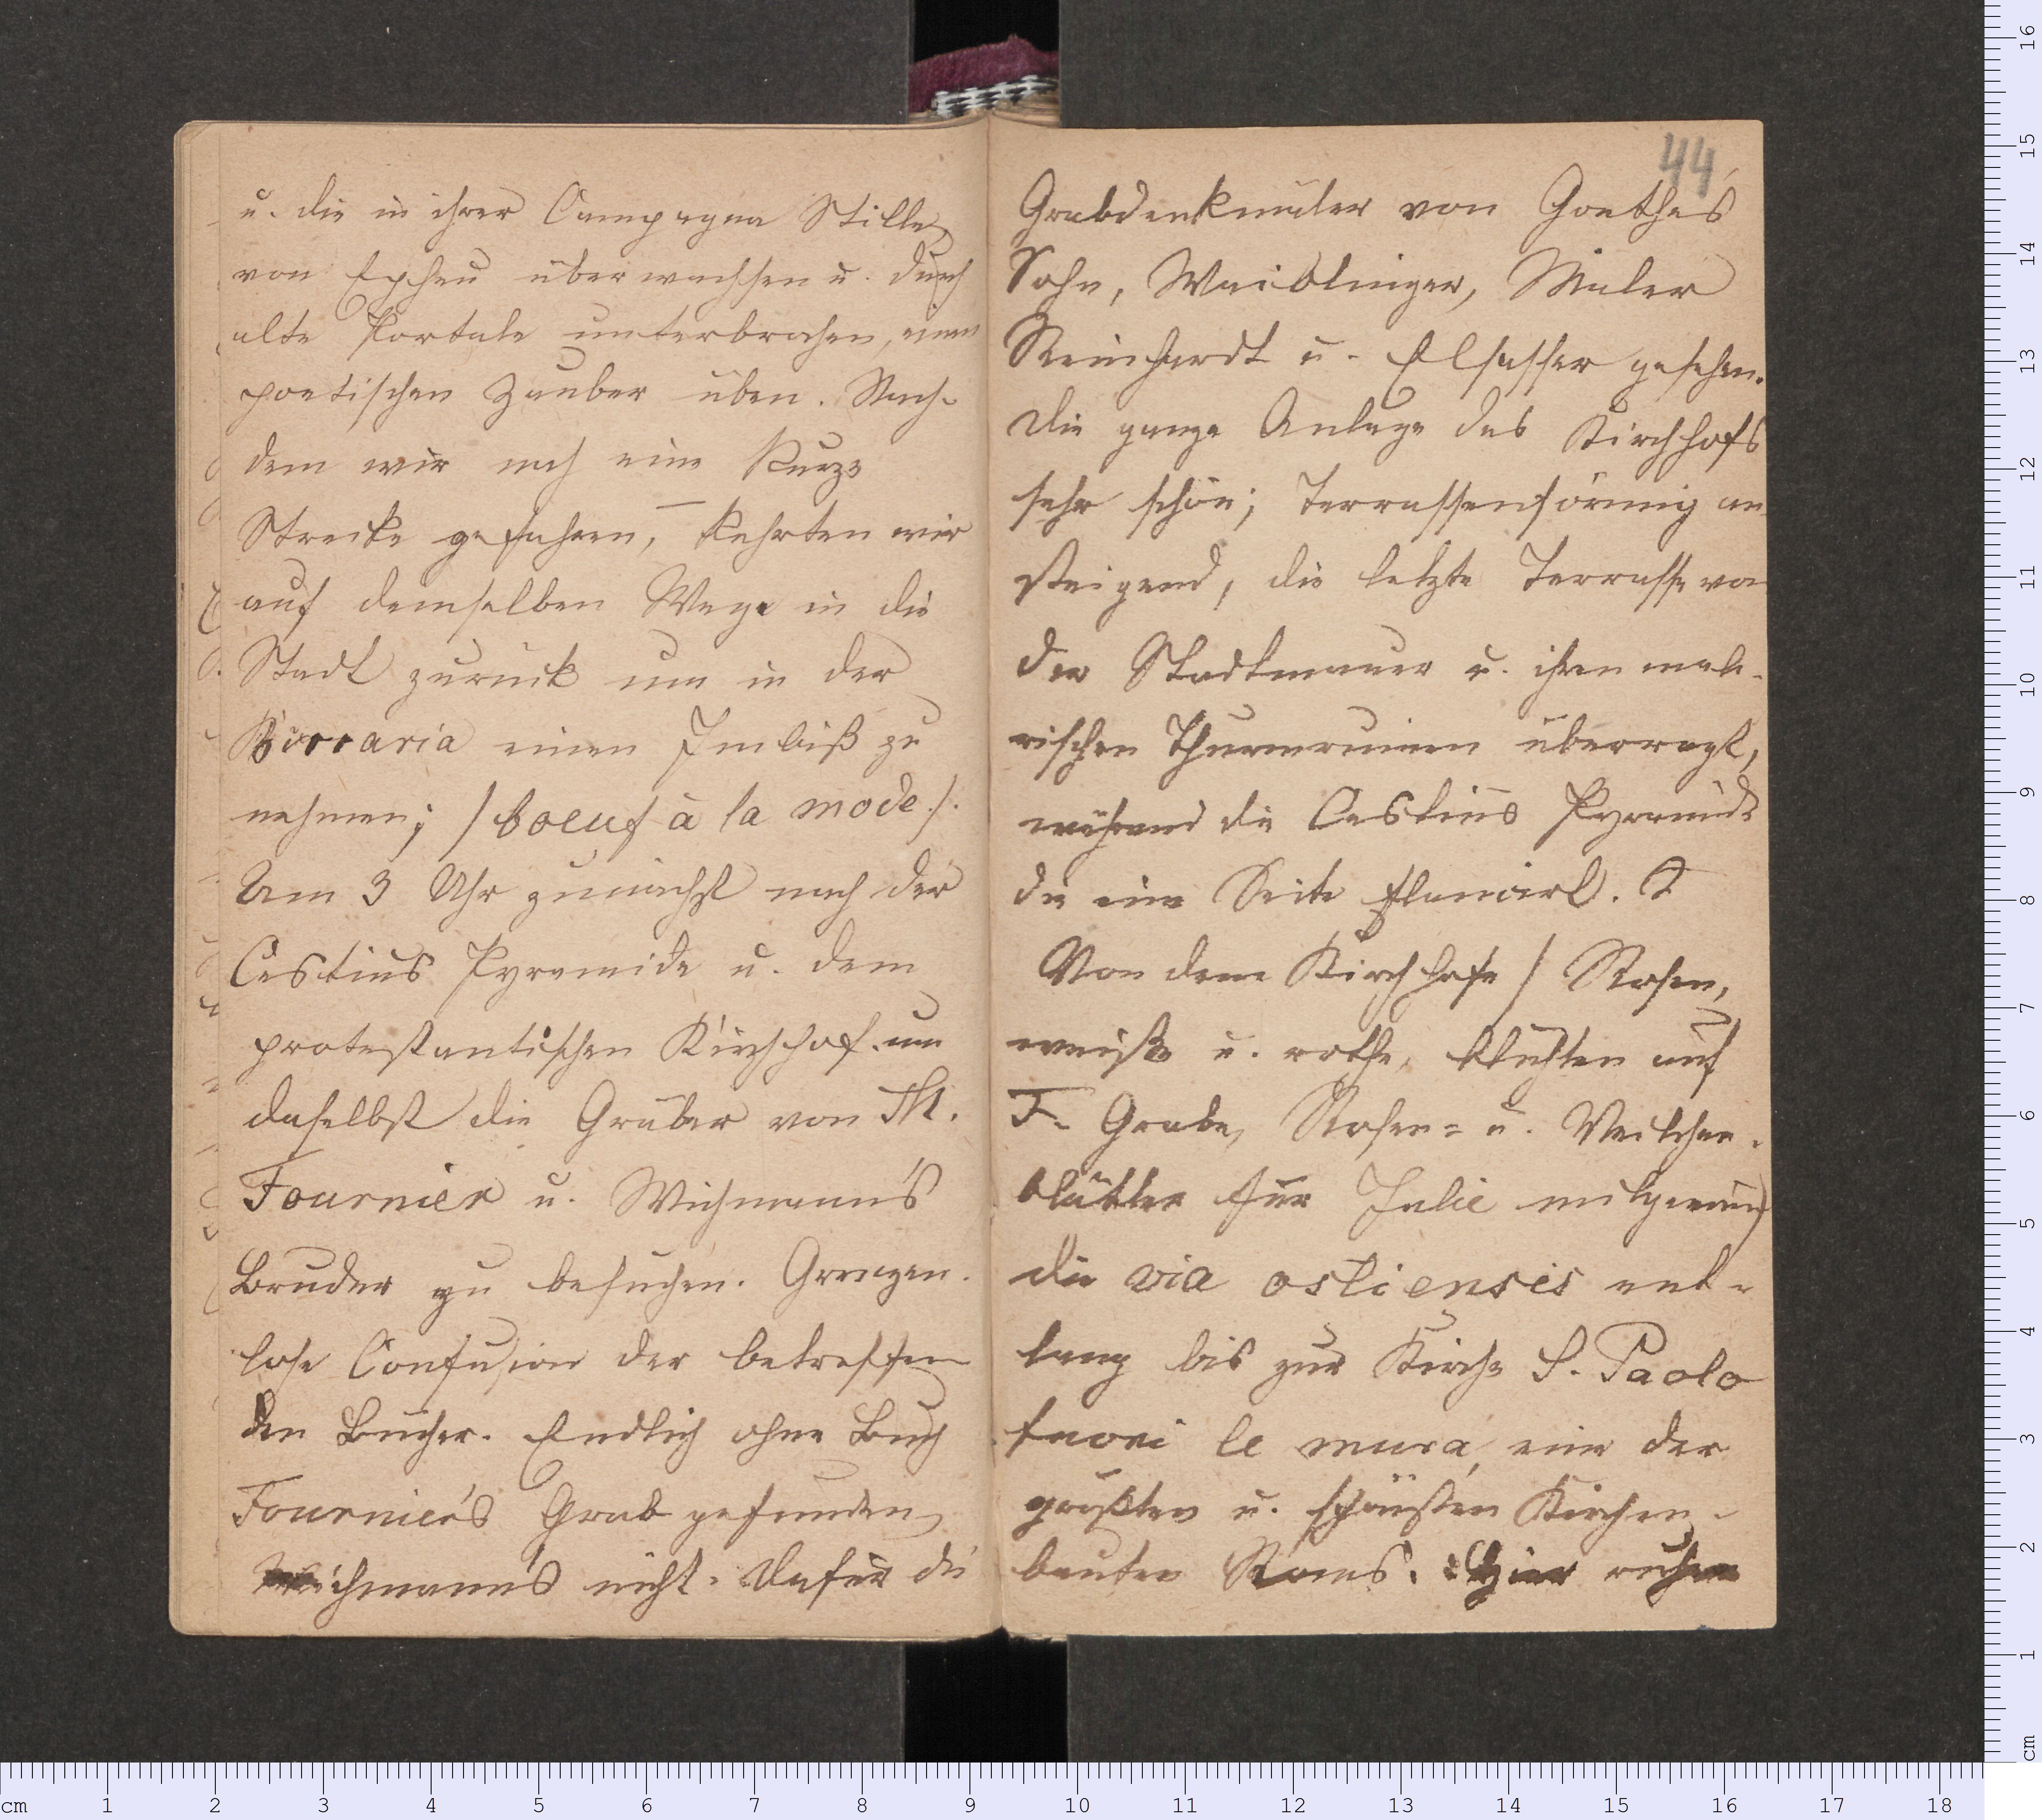 u. die in ihrer Campagna Stille,
von Epheu überwachsen u. durch
alte Portale unterbrochen, einen
poetischen Zauber üben. Nach-
dem wir noch eine Kurze
Strecke gefahren, kehrten wir
auf demselben Wege in die
Stadt zurück um in der
Birraria einen Imbiß zu
nehmen; /boeuf à la mode/.
Um 3 Uhr zunächst nach der
Cestius Pyramide u. dem
protestantischen Kirchhof um
daselbst die Gräber von Th.
Fournier u. Wichmann's
Bruder zu besuchen. Grenzen-
lose Confusion der betreffen
den Bücher. Endlich ohne Buch
Fournier's Grab gefunden,
Wichmann's nicht. Dafür die
44
Grabdenkmäler von Goethes
Sohn, Waiblinger, Maler
Reinhardt u. Elsasser gesehen.
Die ganze Anlage des Kirchhofs
sehr schön; terrassenförmig an
steigend, die letzte Terrasse von
der Stadtmauer u. ihren male-
rischen Thurmruinen überragt,
während die Cestius Pyramide
die eine Seite flancirt.
Von dem Kirchhofe / Rosen,
weiße u. rothe, blühten auf
F. Grabe, Rosen= u. Veilchen-
blätter für Julie mitgenom)
die via ostiensis ent-
lang bis zur Kirche S. Paolo
fuori le mura, eine der
größten u. schönsten Kirchen-
bauten Roms. Hier ruhen